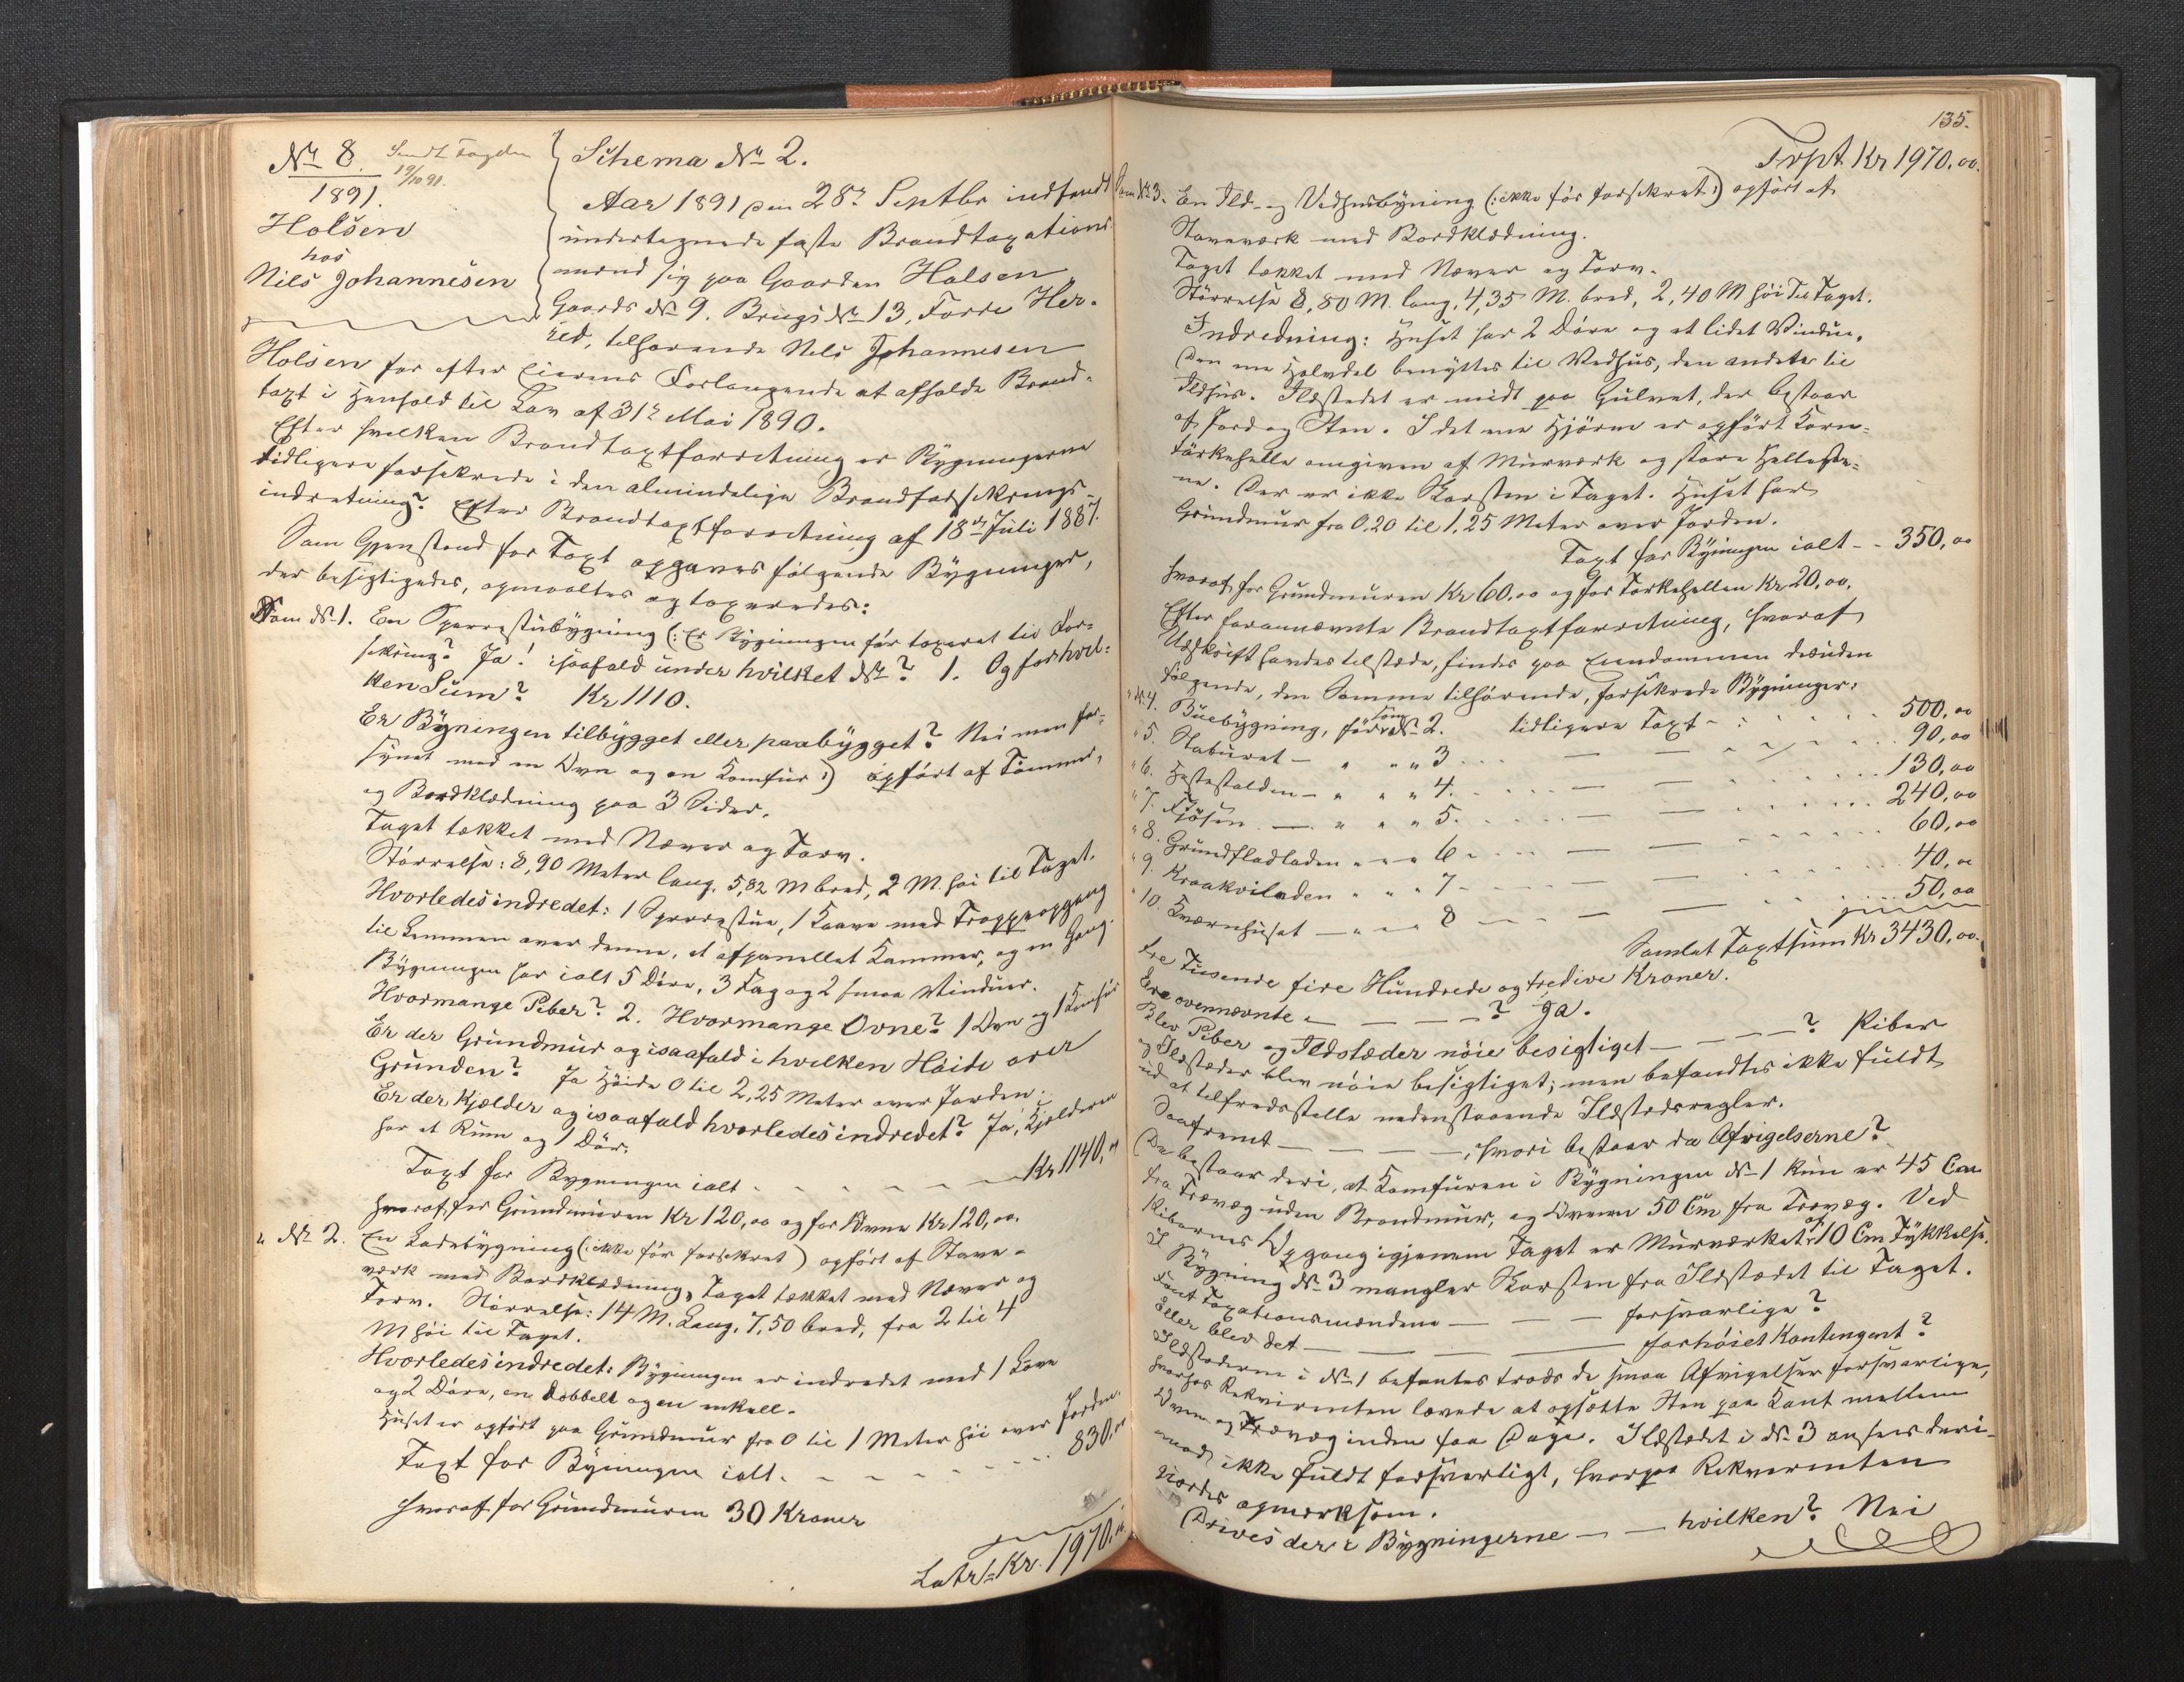 No 8. Sendt Fogden
19/10 91.
1891.
Holsen
hos
Nils Johannesen
Schema No 2.
Aar 1891 den 28de Septbr indfandt
undertegnede faste Brandtaxations
mænd sig paa Gaarden Holsen
Gaards No 9. Brugs No 13, Førde Her-
red, tilhørende Nils Johannesen
Holsen for efter Eierens Forlangende at afholde Brand-
taxt i Henhold til Lov af 31te Mai 1890.
Efter hvilken Brandtaxtforretning er Bygningerne
tidligere forsikrede i den almindelige Brandforsikrings-
indretning? Efter Brandtaxtforretning af 18de Juli 1887.
Som Gjenstand for Taxt opgaves følgende Bygninger,
der besigtigedes, opmaaltes og taxeredes:
Som No 1. En Sperrestubygning (: Er Bygningen før taxeret til For-
sikring? Ja! isaafald under hvilket No? 1. Og for hvil-
ken Sum? Kr 1110.
Er Bygningen tilbygget eller paabygget? Nei men for-
synet med en Ovn og en Komfur :) opført af Tømmer,
og Bordklædning paa 3 Sider.
Taget tækket med Næver og Torv.
Størrelse: 8,90 Meter lang, 5,82 M bred, 2 M. høi til Taget.
Hvorledes indredet: 1 Sperrestue, 1 Kove med Trappeopgang
til Lemmen over denne, et afpanellet Kammer, og en Gang.
Bygningen har ialt 5 Døre, 3 Fag og 2 smaa Vinduer.
Hvormange Piber? 2. Hvormange Ovne? 1 Ovn og 1 Komfur
Er der Grundmur og isaafald i hvilken Høide over
Grunden? Ja Høide 0 til 2,25 Meter over Jorden.
Er der Kjælder og isaafald hvorledes indredet? Ja, Kjælderen
har et Rum og 1 Dør.
Taxt for Bygningen ialt - - - - - - Kr 1140,00
hvoraf for Grundmuren Kr 120,00 og for Ovne Kr 120,00.
" No 2. En Ladebygning (: ikke før forsikret) opført af Stave-
værk med Bordklædning, Taget tækket med Næver og
Torv. Størrelse: 14 M. Lang, 7,50 bred, fra 2 til 4
M høi til Taget.
Hvorledes indredet: Bygningen er indredet med 1 Løve
og 2 Døre, en dobbelt og en enkelt.
Huset er opført paa Grundmur fra 0 til 1 Meter høi over Jorden.
Taxt for Bygningen ialt. - - - - - - 830,00
hvoraf for Grundmuren 30 Kroner
Latr. Kr. 1970,00
135.
Trpt. Kr 1970,00.
Som No 3. En Ild- og Vedhusbygning (: ikke før forsikret :) opført af
Staveværk med Bordklædning.
Taget tækket med Næver og Torv.
Størrelse 8,80 M. lang, 4,35 M. bred, 2,40 M høi til Taget.
Indredning: Huset har 2 Døre og et lidet Vindue.
Den ene Halvdel benyttes til Vedhus, den andete til
Ildhus. Ildstedet er midt paa Gulvet, der bestaar
af Jord og Sten. I det ene Hjørne er opført Korn-
tørkehelle omgiven af Murværk og store Hellesten-
ne. Der er ikke Skorsten i Taget. Huset har
Grundmur fra 0,20 til 1,25 Meter over Jorden.
Taxt for Bygningen ialt - - 350,00
hvoraf for Grundmuren Kr 60.00 og for Tørkehellen Kr 20,00.
Efter forannævnte Brandtaxtforretning, hvoraf
Udskrift havdes tilstede, findes paa Eiendommen desuden
følgende, den Samme tilhørende, forsikrede Bygninger:
" No 4. Buebygning, før som No 2. tidligere Taxt - - - - - - 500,00
" 5. Staburet - " " " 3 . . . — — - - - - 90,00
" 6. Hestestalden - " " " 4. - - - - — — . . . . . . 130,00
" 7. Fjøsen — " " " 5. - - - - - — — . . . . . . 240,00
" 8. Grundfladladen " " " 6 - - - - — — - - - - - - 60,00
" 9. Kraakviladen " " " 7 - - - - — — - - - - 40,00
" 10. Kværnhuset — " " " 8 - - - - — — . . . . . . 50,00
Samlet Taxtsum Kr 3430,00.
tre Tusende fire Hundrede og tredive Kroner.
Ere ovennævnte — — — — ? Ja.
Blev Piber og Ildsteder nøie besigtiget — — — ? Piber
og Ildsteder blev nøie besigtiget; men befandtes ikke fuldt
ud at tilfredsstille nedenstaaende Ildstedsregler.
Saafremt — — — —, hvori bestaar da Afvigelserne?
De bestaar deri, at Komfuren i Bygningen No 1 kun er 45 Cm
fra Trævæg uden Brandmur, og Ovnen 50 Cm fra Trævæg. Ved
Pibernes Opgang igjennem Taget er Murværket af 10 Cm Tykkelse.
I Bygning No 3 mangler Skorsten fra Ildstedet til Taget.
Fant Taxationsmændene — — — forsvarlige?
Eller blev det — — — — forhøiet Kontingent?
Ildstederne i No 1 befantes trods de smaa Afvigelser forsvarlige,
hvorhos Rekvirenten lovede at opsætte Sten paa Kant mellem
Ovn og Trævæg inden faa Dage. Ildstedet i No 3 ansees deri-
mod ikke fuldt forsvarligt, hvorpaa Rekvirenten
gjordes opmærksom.
Drives der i Bygningerne — — hvilken? Nei